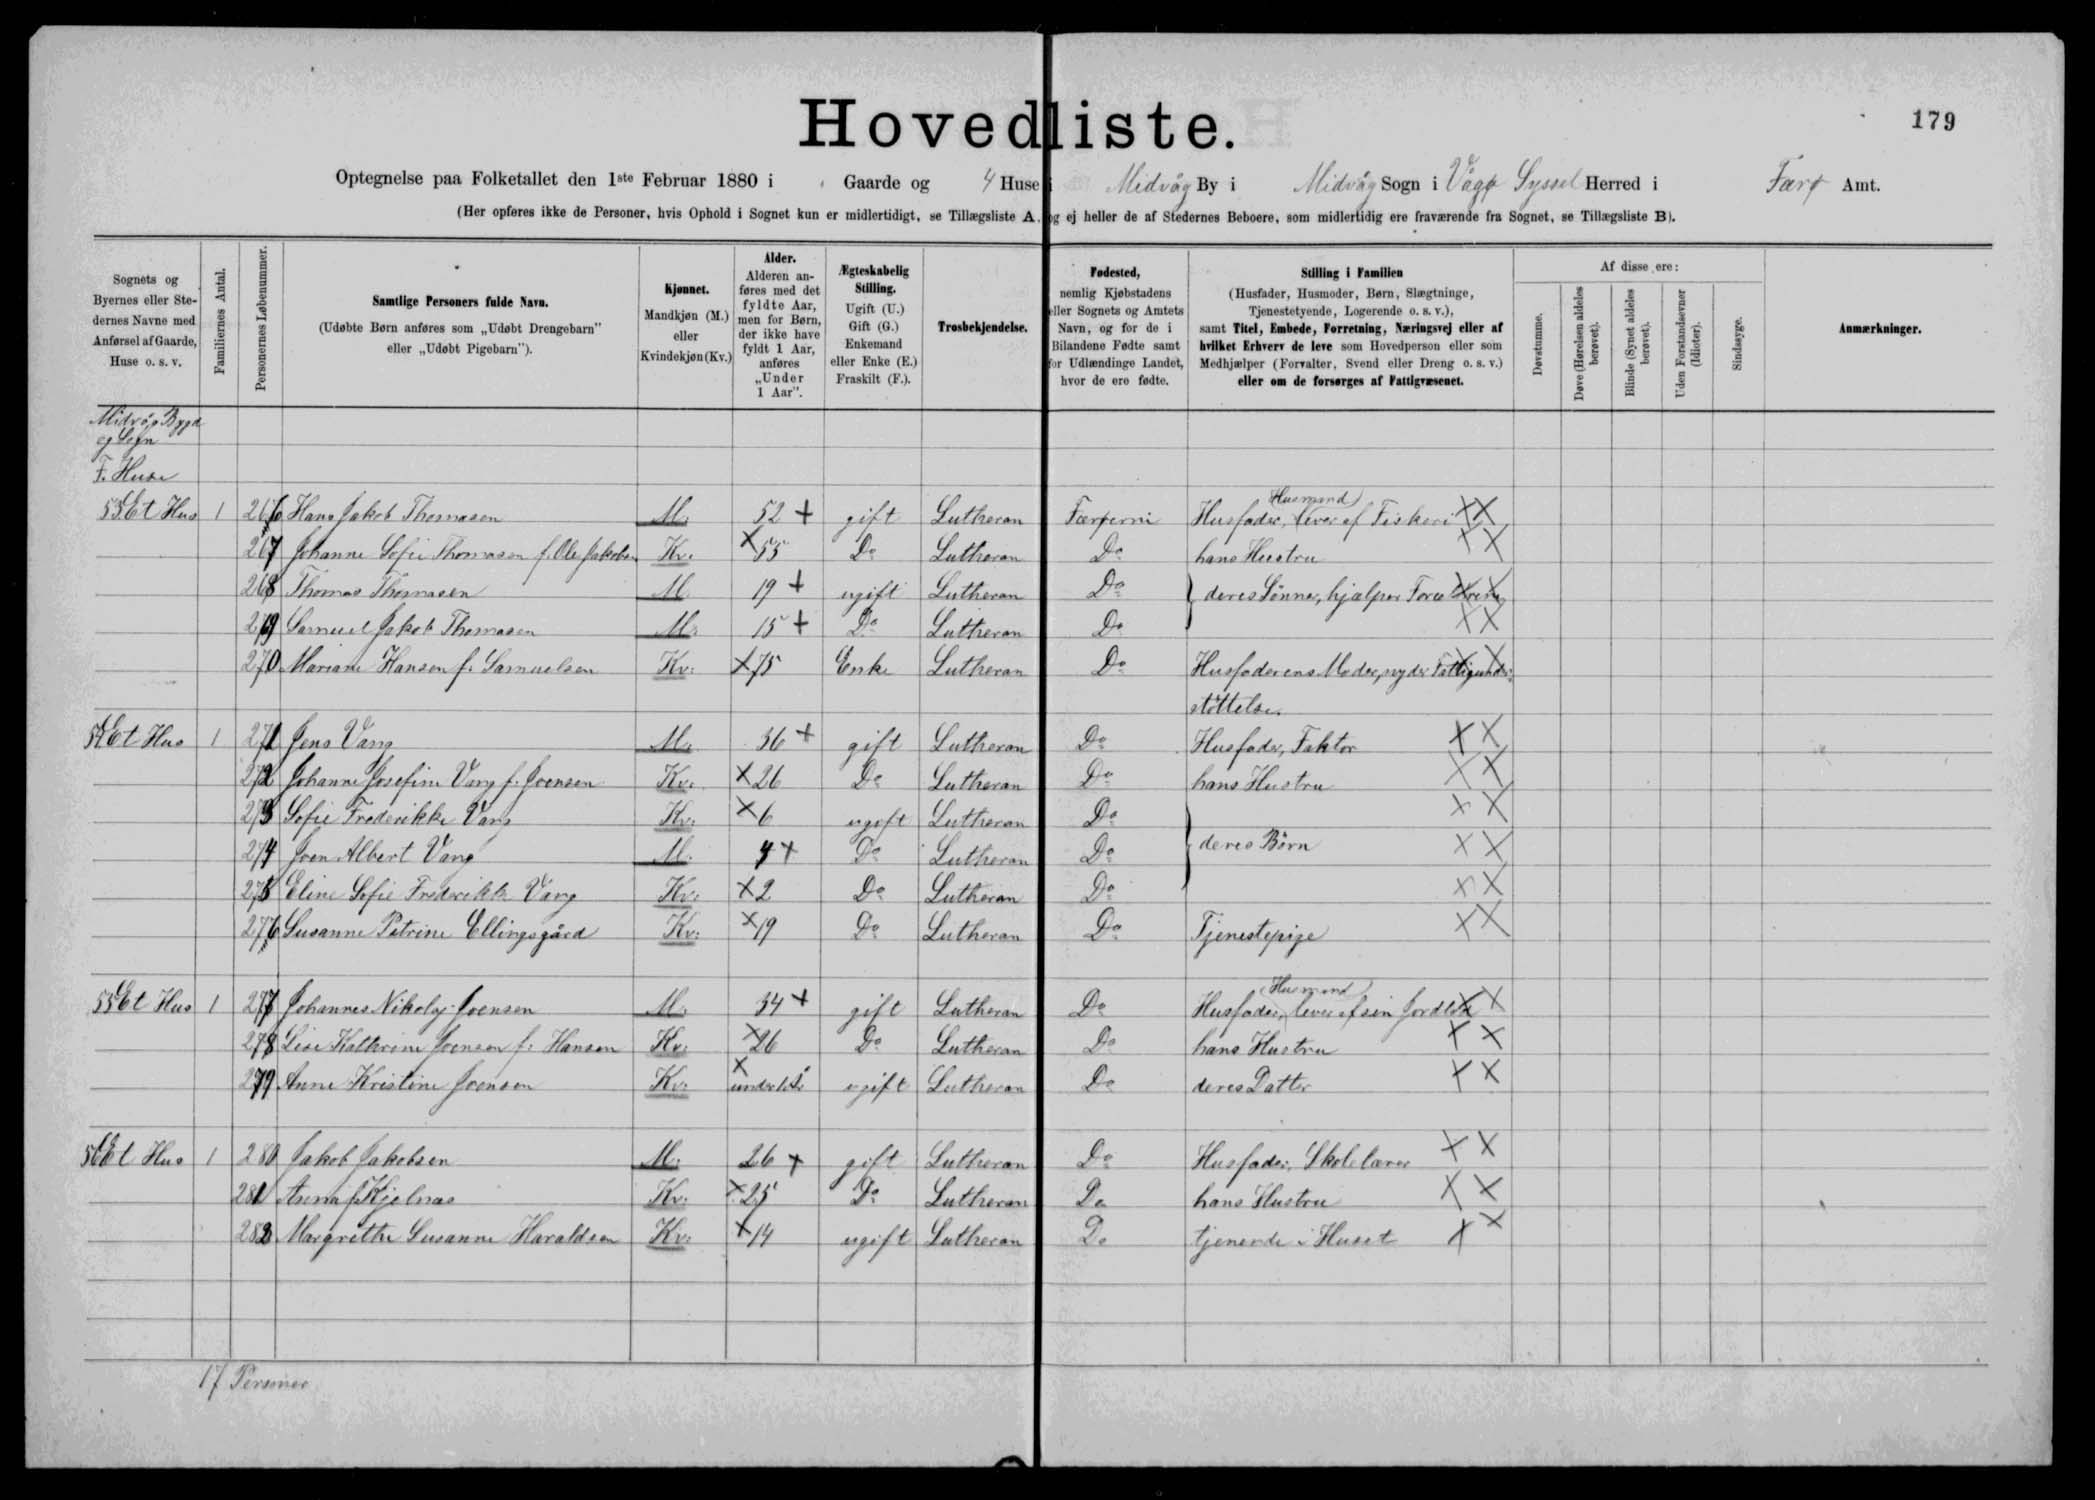 Hovedliste.
179
Optegnelse paa Folketallet den 1ste Februar 1880 i Gaarde og 4 Huse i Midvåg By i Midvåg Sogn i Vågø Syssel Herred i Færø Amt.
(Her opføres ikke de Personer, hvis Ophold i Sognet kun er midlertidigt, se Tillægsliste A. og ej heller de af Stedernes Beboere, som midlertidig ere fraværende fra Sognet, se Tillægsliste B).
Sognets og Byernes eller Stedernes Navne med Anførsel af Gaarde, Huse o. s. v.
Familiernes Antal.
Personernes Løbenummer.
Samtlige Personers fulde Navn.
(Udøbte Børn anføres som „Udøbt Drengebarn" eller „Udøbt Pigebarn").
Kjønnet.
Mandkjøn (M.) eller Kvindekjøn (Kv.)
Alder.
Alderen anføres med det fyldte Aar, men for Børn, der ikke have fyldt 1 Aar, anføres „Under 1 Aar".
Ægteskabelig Stilling.
Ugift (U.) Gift (G.) Enkemand eller Enke (E.) Fraskilt (F.).
Trosbekjendelse.
Fødested,
nemlig Kjøbstadens eller Sognets og Amtets Navn, og for de i Bilandene Fødte samt for Udlændinge Landet, hvor de ere fødte.
Stilling i Familien
(Husfader, Husmoder, Børn, Slægtninge, Tjenestetyende, Logerende o. s. v.),
samt Titel, Embede, Forretning, Næringsvej eller af hvilket Erhverv de leve som Hovedperson eller som Medhjælper (Forvalter, Svend eller Dreng o. s. v.) eller om de forsørges af Fattigvæsenet.
Af disse ere:
Døvstumme.
Døve (Hørelsen aldeles berøvet).
Blinde (Synet aldeles berøvet).
Uden Forstandsevner (Idioter).
Sindssyge.
Anmærkninger.
Midvåg Bygd
og Sogn
F. Huse
53 Et Hus 1 266 Hans Jakob Thomasen M. 52 + gift Lutheran Færøerne Husfader, Husmand lever af Fiskeri XX
267 Johanne Sofie Thomasen f. Ole Jakobsen Kv. x 55 Do Lutheran Do hans Hustru XX
268 Thomas Thomasen M. 19 + ugift Lutheran Do } deres Sønner, hjælper Forældrene
269 Samuel Jakob Thomasen M. 15 + Do Lutheran Do XX
270 Mariane Hansen f. Samuelsen Kv. x 75 Enke Lutheran Do Husfaderens Moder, nyder Fattigunder-
støttelse.
54 Et Hus 1 271 Jens Vang M. 36 + gift Lutheran Do Husfader, Faktor XX
272 Johanne Josefine Vang f. Joensen Kv. x 26 Do Lutheran Do hans Hustru XX
273 Sofie Frederikke Vang Kv. x 6 ugift Lutheran Do XX
274 Joen Albert Vang M. 4 + Do Lutheran Do } deres Børn XX
275 Eline Sofie Frederikke Vang Kv. x 2 Do Lutheran Do XX
276 Susanne Petrine Ellingsgård Kv. x 19 Do Lutheran Do Tjenestepige XX
55 Et Hus 1 277 Johannes Nikolaj Joensen M. 34 + gift Lutheran Do Husfader, Husmand lever af sin Jordlod X
278 Lise Kathrine Joensen f. Hansen Kv. x 26 Do Lutheran Do hans Hustru XX
279 Anne Kristine Joensen Kv. x under 1 år ugift Lutheran Do deres Datter XX
56 Et Hus 1 280 Jakob Jakobsen M. 26 + gift Lutheran Do Husfader, Skolelærer XX
281 Anna f. Kjelnæs Kv. x 25 Do Lutheran Do hans Hustru XX
282 Margrethe Susanne Haraldsen Kv. x 14 ugift Lutheran Do tjenende i Huset XX
17 Personer